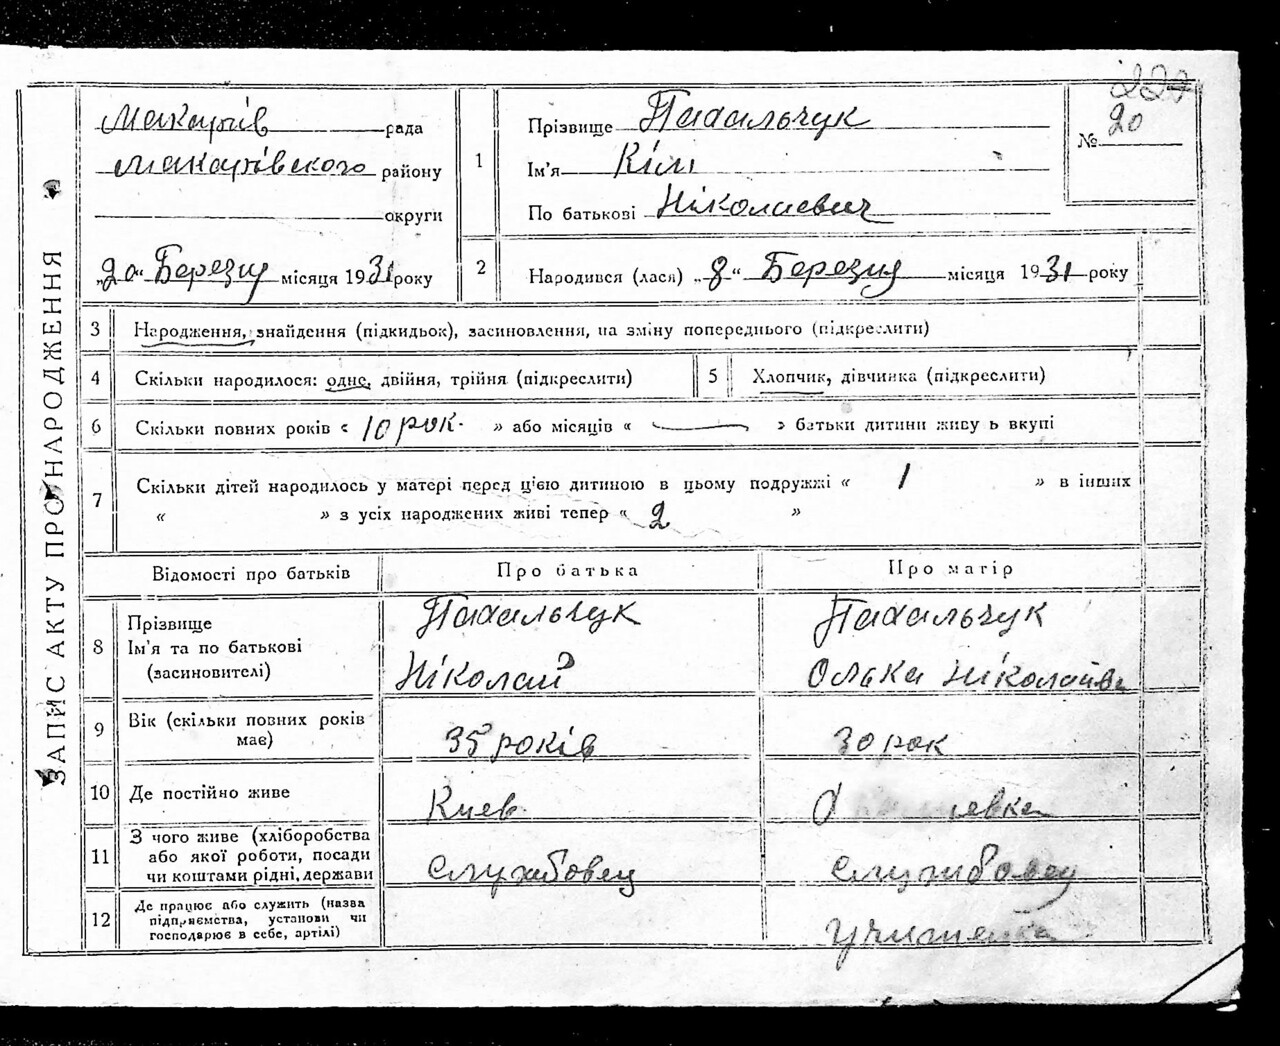 ЗАПИС АКТУ ПРО НАРОДЖЕННЯ
Макарів рада
Макарівского району
округи
„20“ Березня місяця 1931 року
1
Прізвище Пахальчук
Ім'я Кім
По батькові Ніколаевич
227
№ 20
2
Народився (лася) „8“ Березня місяця 1931 року
3 Народження, знайдення (підкидьок), засиновлення, на зміну попереднього (підкреслити)
4 Скільки народилося: одне, двійня, трійня (підкреслити)
5 Хлопчик, дівчинка (підкреслити)
6 Скільки повних років « 10 рок. » або місяців « — » батьки дитини живу ь вкупі
7 Скільки дітей народилось у матері перед цією дитиною в цьому подружжі « 1 » в інших
« » з усіх народжених живі тепер « 2 »
Відомості про батьків Про батька Про матір
8 Прізвище Ім'я та по батькові (засновителі)
Пахальчук
Ніколай
Пахальчук
Олька Ніколаївн
9 Вік (скільки повних років має) 35 років 30 рок
10 Де постійно живе Киев
11 З чого живе (хліборобства або якої роботи, посади чи коштами рідні, держави Службовец Службовец
12 Де працює або служить (назва підприємства, установи чи господарює в себе, артілі) Учителька